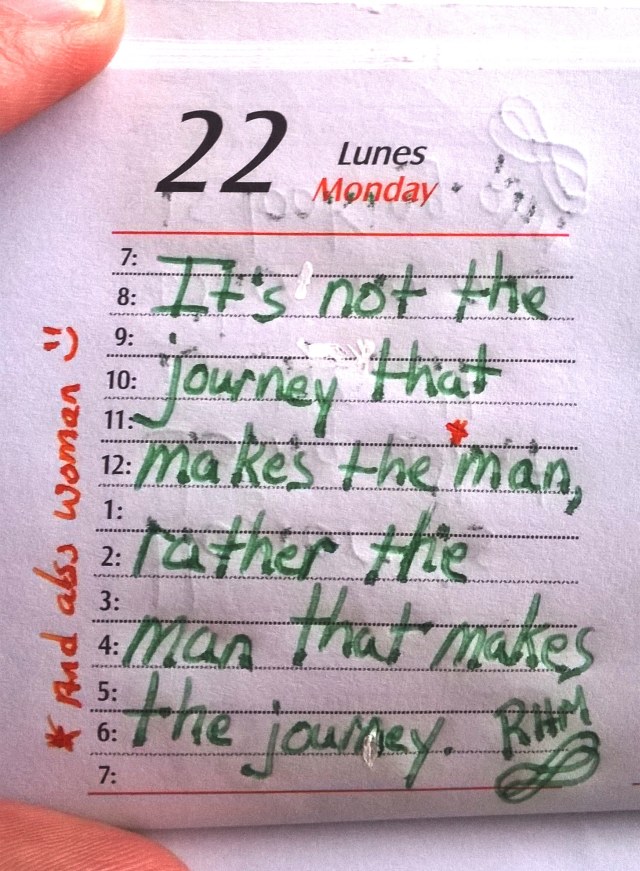 22
Lunes
Monday
7:
8: It's not the
9:
10: journey that
11: *
12: makes the man,
1:
2: rather the
3:
4: man that makes
5:
6: the journey. RHM
7:
* And also women :)